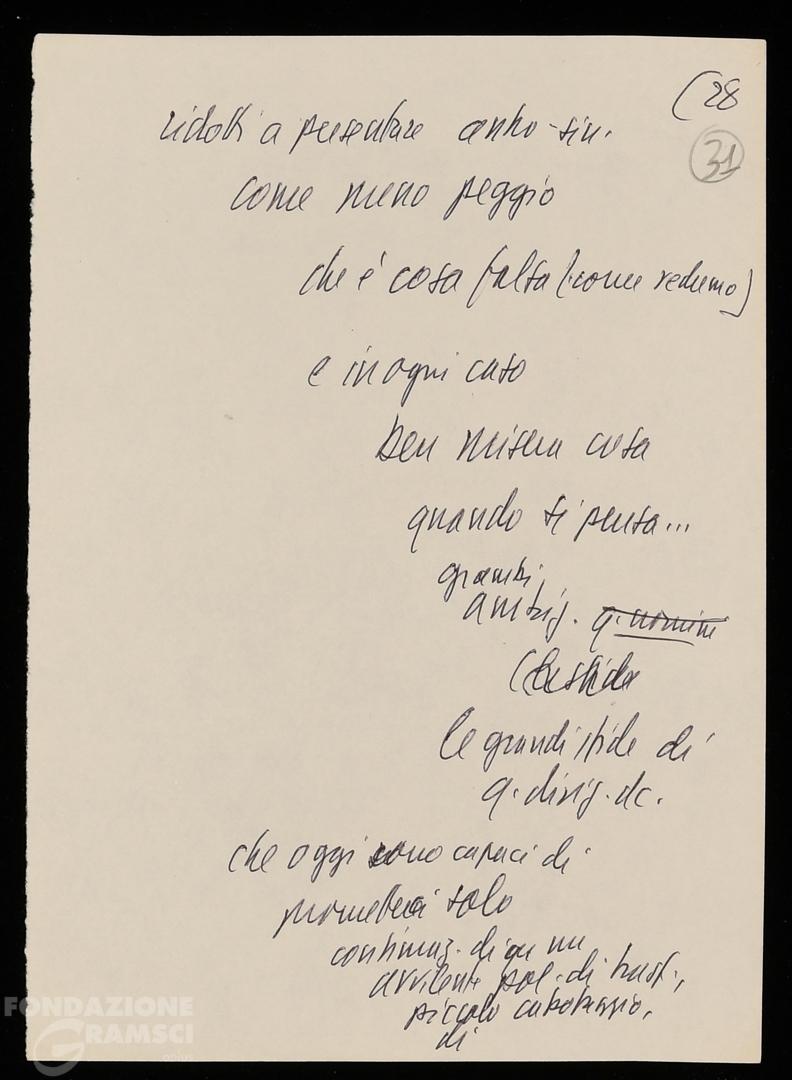 (28
31
ridotti a presentare centro-sin.
come meno peggio
che è cosa falsa (come vedremo)
e in ogni caso
ben misera cosa
quando si pensa...
grandi
ambiz. q. uomini
le grandi sfide di
q. dirig. dc.
che oggi sono capaci di
prometterci solo
continuaz. di
avvilente pol. di
piccolo cabotaggio,
di
FONDAZIONE
GRAMSCI